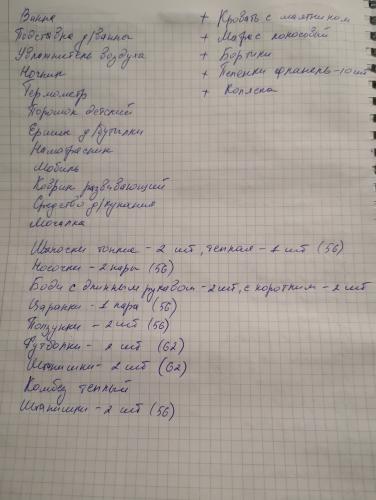 Ванна
Подставка д/ванны
Увлажнитель воздуха
Ночник
Термометр
Порошок детский
Ёршик д/бутылки
Наматрасник
Мобиль
Коврик развивающий
Средство д/купания
Мочалка
+ Кровать с маятником
+ Матрас кокосовый
+ Бортики
+ Пеленки фланель - 10 шт
+ Коляска
Шапочки тонкие - 2 шт, теплая - 1 шт (56)
Носочки - 2 пары (56)
Боди с длинным рукавом - 2 шт, с коротким - 2 шт
Царапки - 1 пара (56)
Ползунки - 2 шт (56)
Футболки - 2 шт (62)
Штанишки - 2 шт (62)
Комбез теплый
Штанишки - 2 шт (56)